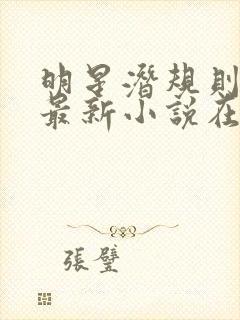 明星潛規則
最新小說在
張璧